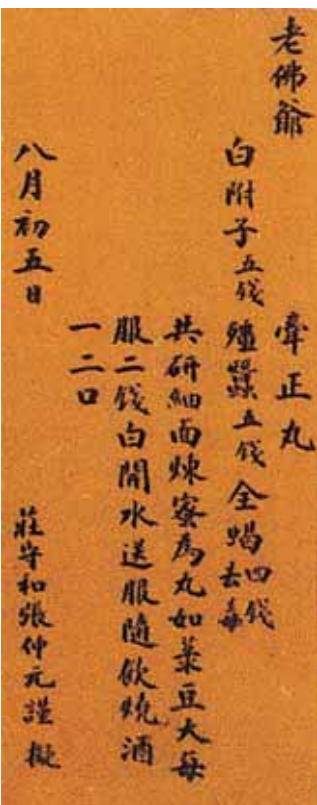 老佛爺
牽正丸
白附子五錢 殭蠶五錢 全蝎四錢去毒
共研細面煉蜜為丸如菉豆大每
服二錢白開水送服隨飲燒酒
一二口
八月初五日
莊守和張仲元謹擬